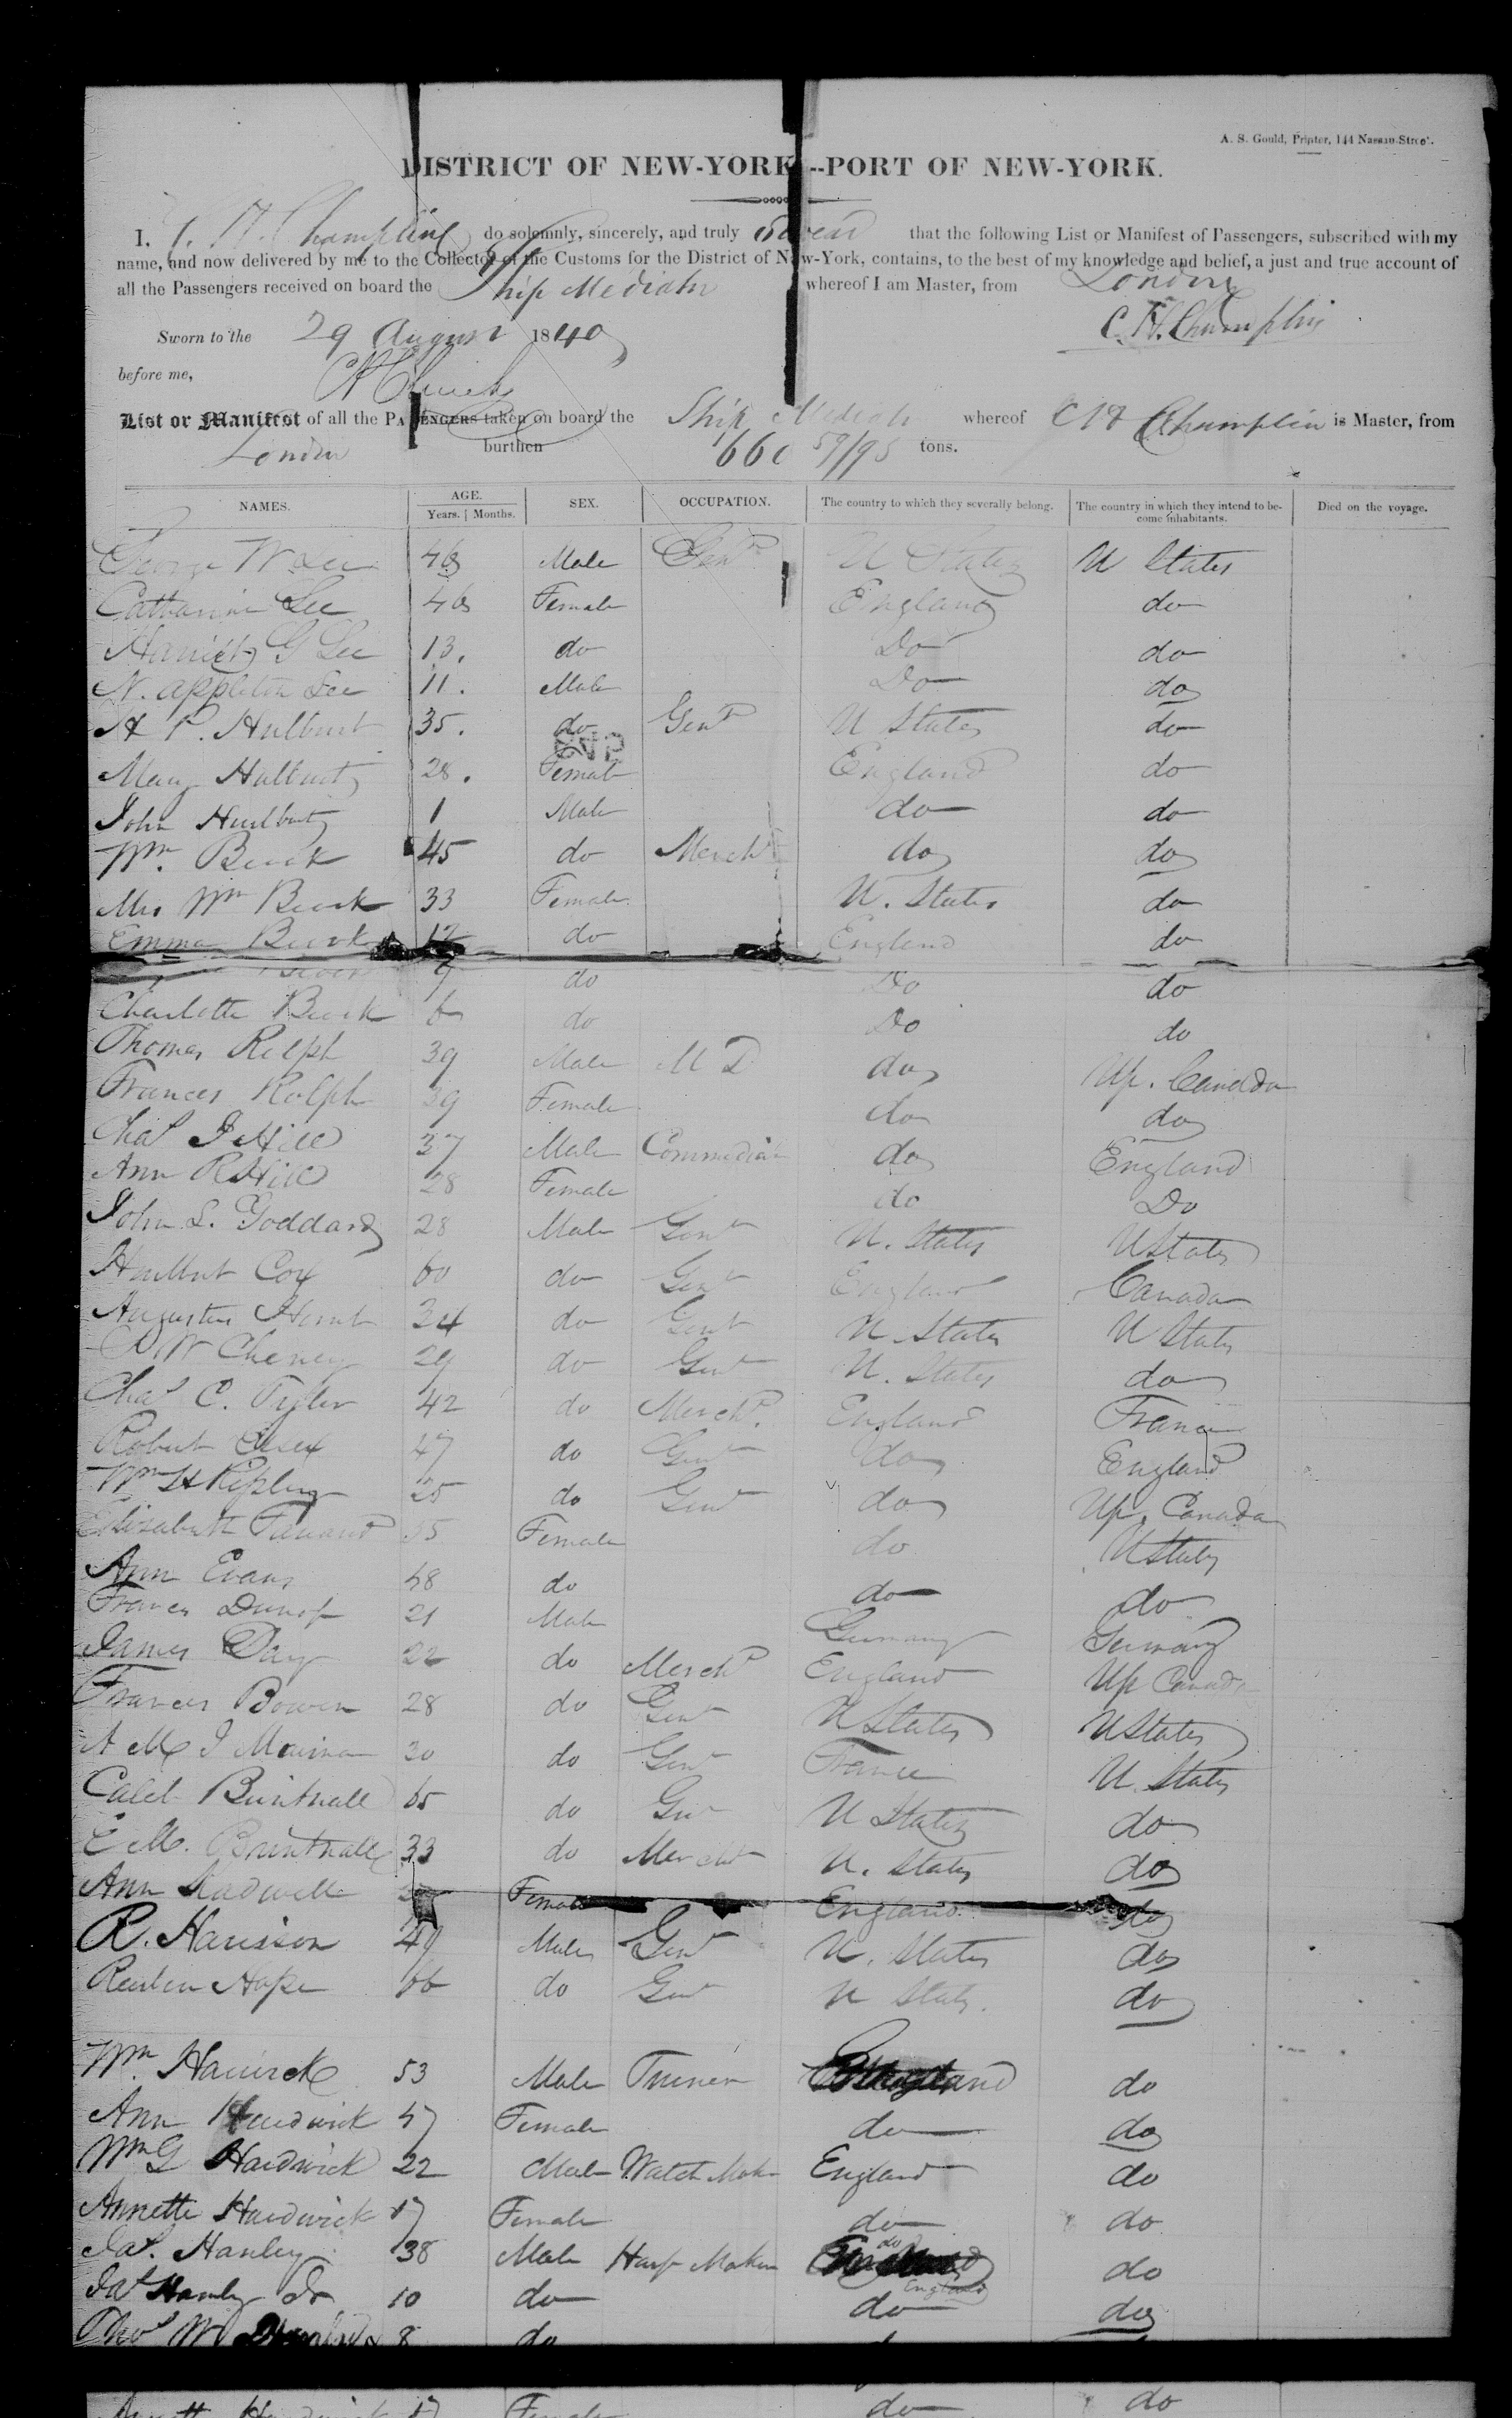 A. S. Gould, Printer, 144 Nassau-Street.
DISTRICT OF NEW-YORK--PORT OF NEW-YORK.
I, C. H. Champlin do solemnly, sincerely, and truly swear that the following List or Manifest of Passengers, subscribed with my
name, and now delivered by me to the Collector of the Customs for the District of New-York, contains, to the best of my knowledge and belief, a just and true account of
all the Passengers received on board the Ship Mediator whereof I am Master, from London
Sworn to the 29 August 1840 C. H. Champlin
before me,
List or Manifest of all the PASSENGERS taken on board the Ship Mediator whereof C H Champlin is Master, from
London burthen 660 59/95 tons.
NAMES. AGE. SEX. OCCUPATION. The country to which they severally belong. The country in which they intend to become inhabitants. Died on the voyage.
Years. Months.
George W Lee 46 Male Gent U States U States
Catharine Lee 46 Female England do
Harriett G Lee 13. do Do do
N. Appleton Lee 11. Male Do do
H P. Hulburt 35. do Gent U States do
Mary Hulburt 28. Female England do
John Hurlburt 1 Male do do
Wm. Buck 45 do Mercht do do
Mrs Wm Buck 33 Female U. States do
Emma Buck 12 do England do
9 do Do do
Charlotte Buck 6 do Do do
Thomas Rolph 39 Male M D do Up. Canada
Frances Rolph 39 Female do do
Chas J Hill 37 Male Commedian do England
Ann R Hill 28 Female do Do
John S. Goddard 28 Male Gent U. States U States
Cox 60 do Gent England Canada
Augustus 34 do Gent U. States U States
P W Cheney 29 do Gent U. States do
Chas C. Tyler 42 do Mercht. England France
Robert 47 do Gent do England
Wm H Kipling 25 do Gent do Up. Canada
Elizabeth 55 Female do U States
Ann Evans 48 do do do
Frances 21 Male Germany Germany
James Day 22 do Mercht England Up Canada
Frances Bowen 28 do Gent U States U States
A M J 30 do Gent France U. States
Caleb Brintnall 65 do Gent U States do
C M. Brintnall 33 do Mercht U. States do
Ann Female England do
R. Harrison 49 Male Gent U. States do
Reuben Hope 66 do Gent U States. do
Wm. 53 Male Turner England do
Ann Hardwick 47 Female do do
Wm G Hardwick 22 Male Watch Maker England do
Annette Hardwick 17 Female do do
Jas. Hanley 38 Male Harp Maker do England do
Jas Hanley Jr 10 do do do
Thos W 8 do
Annette Hardwick 17 Female do do